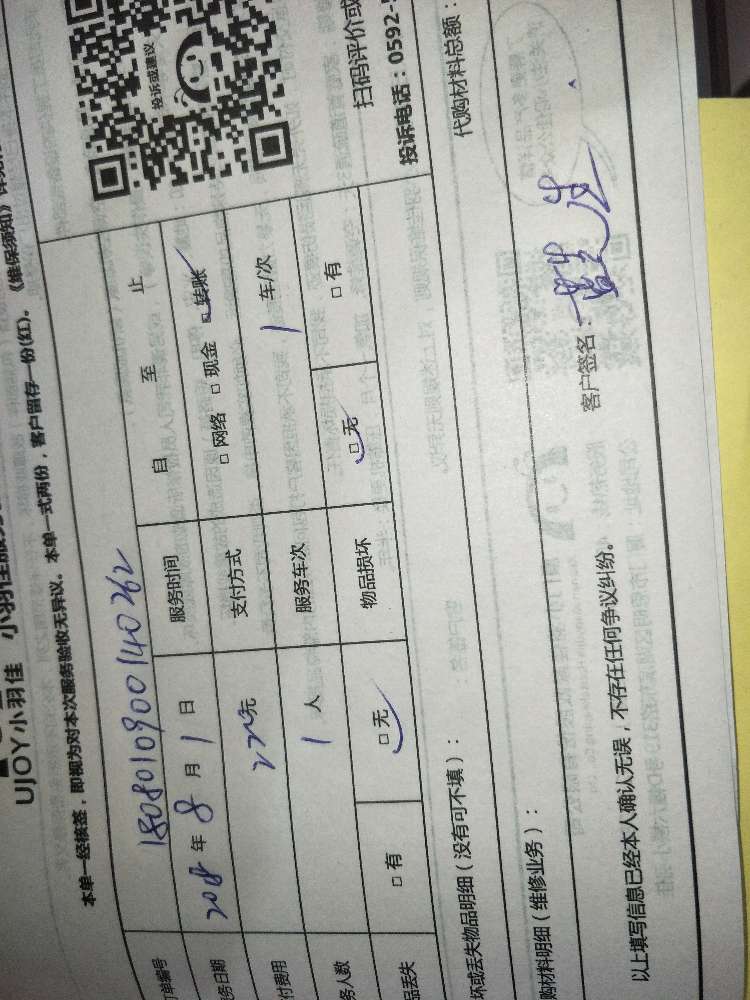 UJOY小羽佳 小羽佳服务
本单一经核签，即视为对本次服务验收无异议。本单一式两份，客户留存一份(红)。《维保须知》
单编号 180801090014026２
务日期 2018 年 8 月 1 日 服务时间 自 至 止
付费用 220元 支付方式 □ 网络 □ 现金 □ 转账
务人数 1 人 服务车次 1 车/次
品丢失 □ 有 □ 无 物品损坏 □ 无 □ 有
投诉或建议
扫码评价或
投诉电话：0592-
坏或丢失物品明细（没有可不填）：
代购材料总额：
购材料明细（维修业务）：
客户签名：蓝先生
以上填写信息已经本人确认无误，不存在任何争议纠纷。